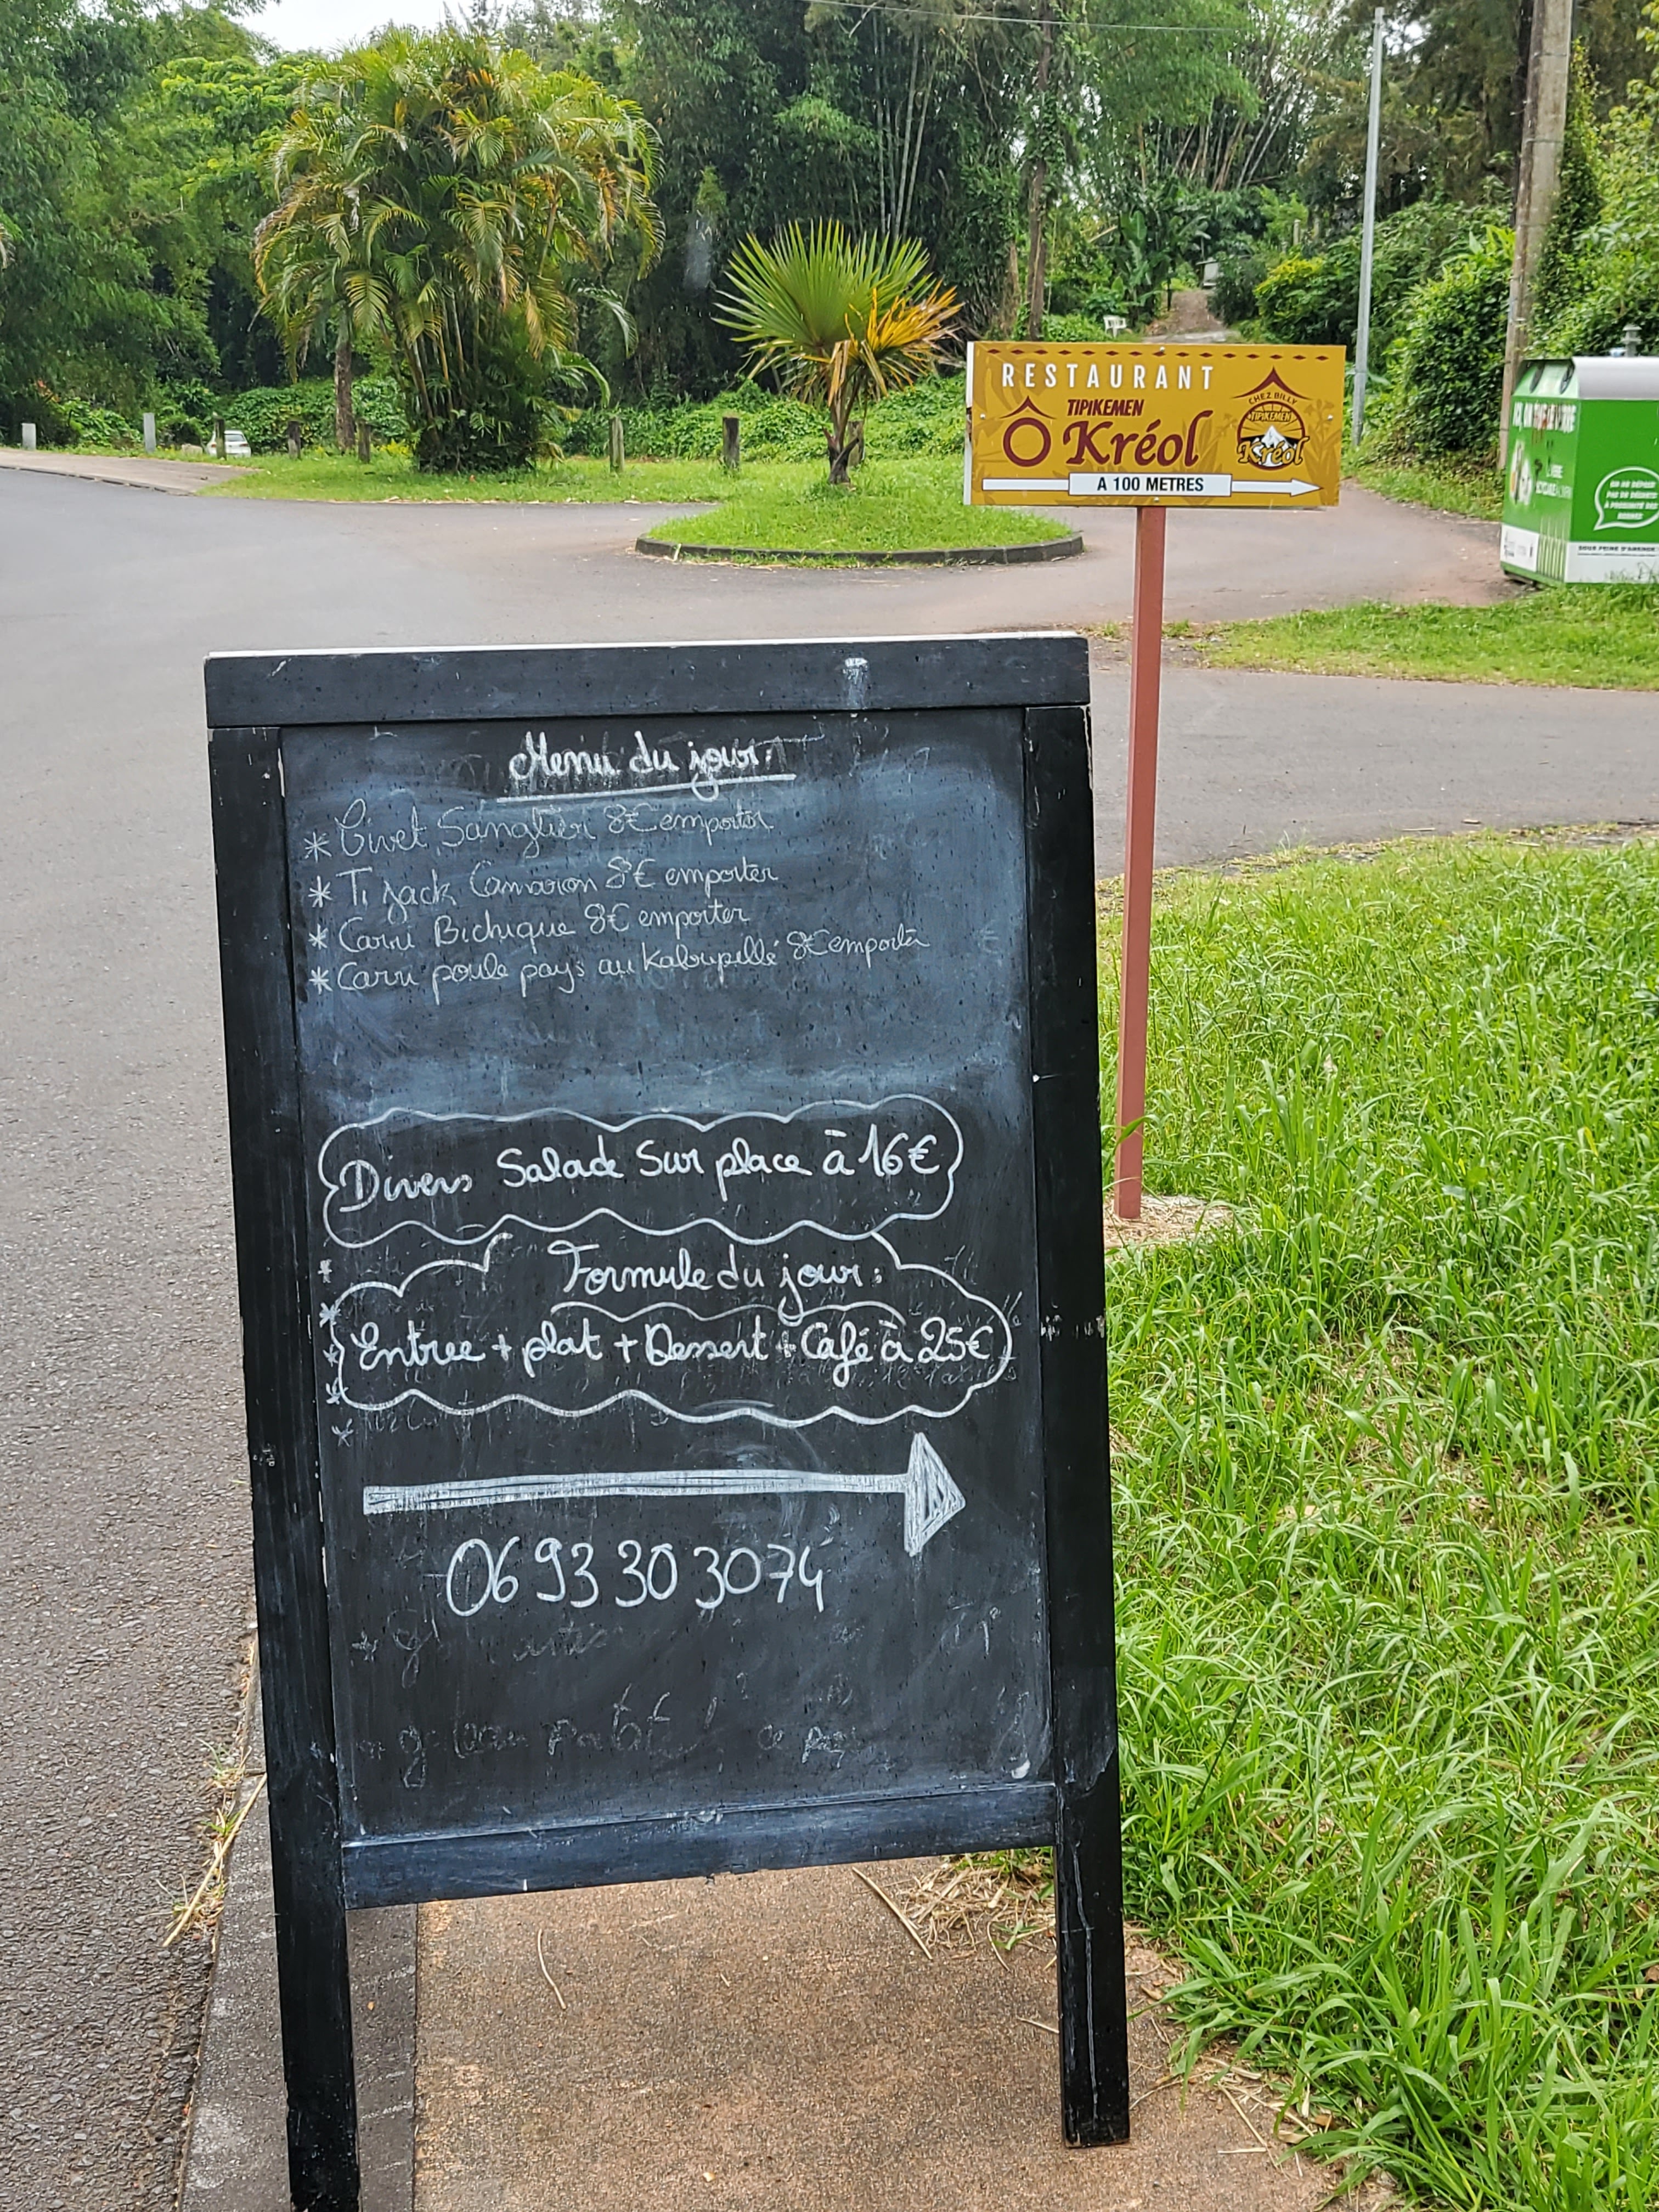 RESTAURANT
TIPIKEMEN
Ô Kréol
CHEZ BILLY
TIPIKEMEN
Kréol
A 100 METRES
ON NE DÉPOSE
PAS DE DÉCHETS
À PROXIMITÉ DES
BORNES
SOUS PEINE D'AMENDE
Menu du jour:
* Civet Sanglier 8€ emporter
* Ti jack Camaron 8€ emporter
* Carri Bichique 8€ emporter
* Carri poule pays au 8€ emporter
Divers Salade Sur place à 16€
Formule du jour:
Entree + plat + Dessert + Café à 25€
06 93 30 30 74